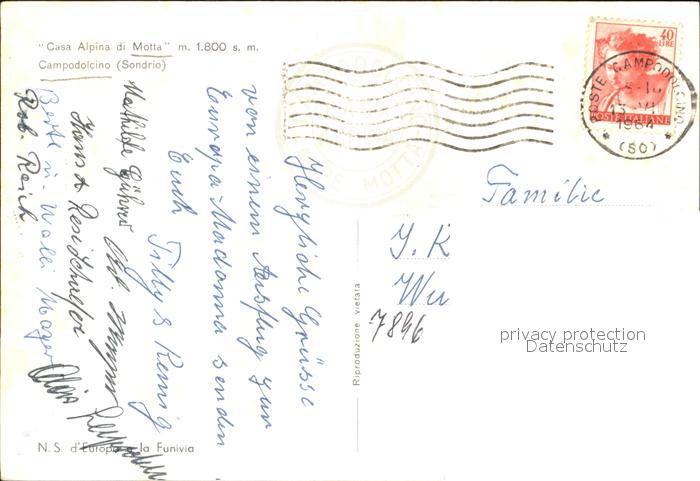 "Casa Alpina di Motta" m. 1.800 s. m.
Campodolcino (Sondrio)
40
LIRE
POSTE ITALIANE
POSTE CAMPODOLCINO
1964
(SO)
Herzliche Grüsse
von einem Ausflug zur
Europa-Madonna senden
Euch
Tilly &
Mathilde
Hans & Resi
Berte u. Walli Mayer
Rob. Reich
Familie
J. K
Wu
7896
Riproduzione vietata
privacy protection
Datenschutz
N. S. d'Europa e la Funivia